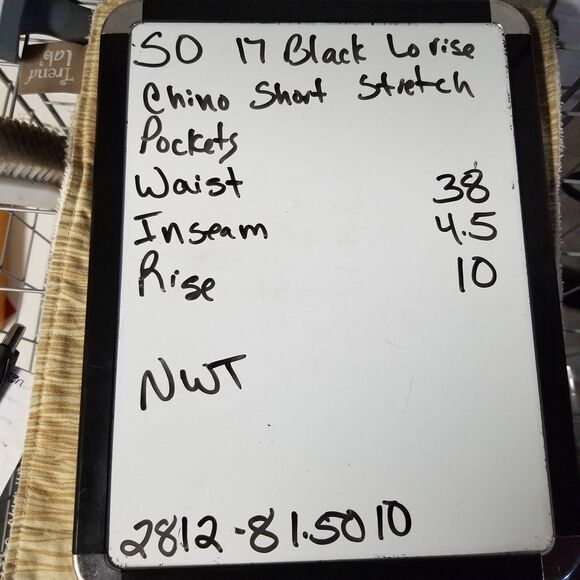 SO 17 Black Lo rise
Chino Short Stretch
Pockets
Waist 38
Inseam 4.5
Rise 10
NWT
2812-81.5010
Trend
Lab